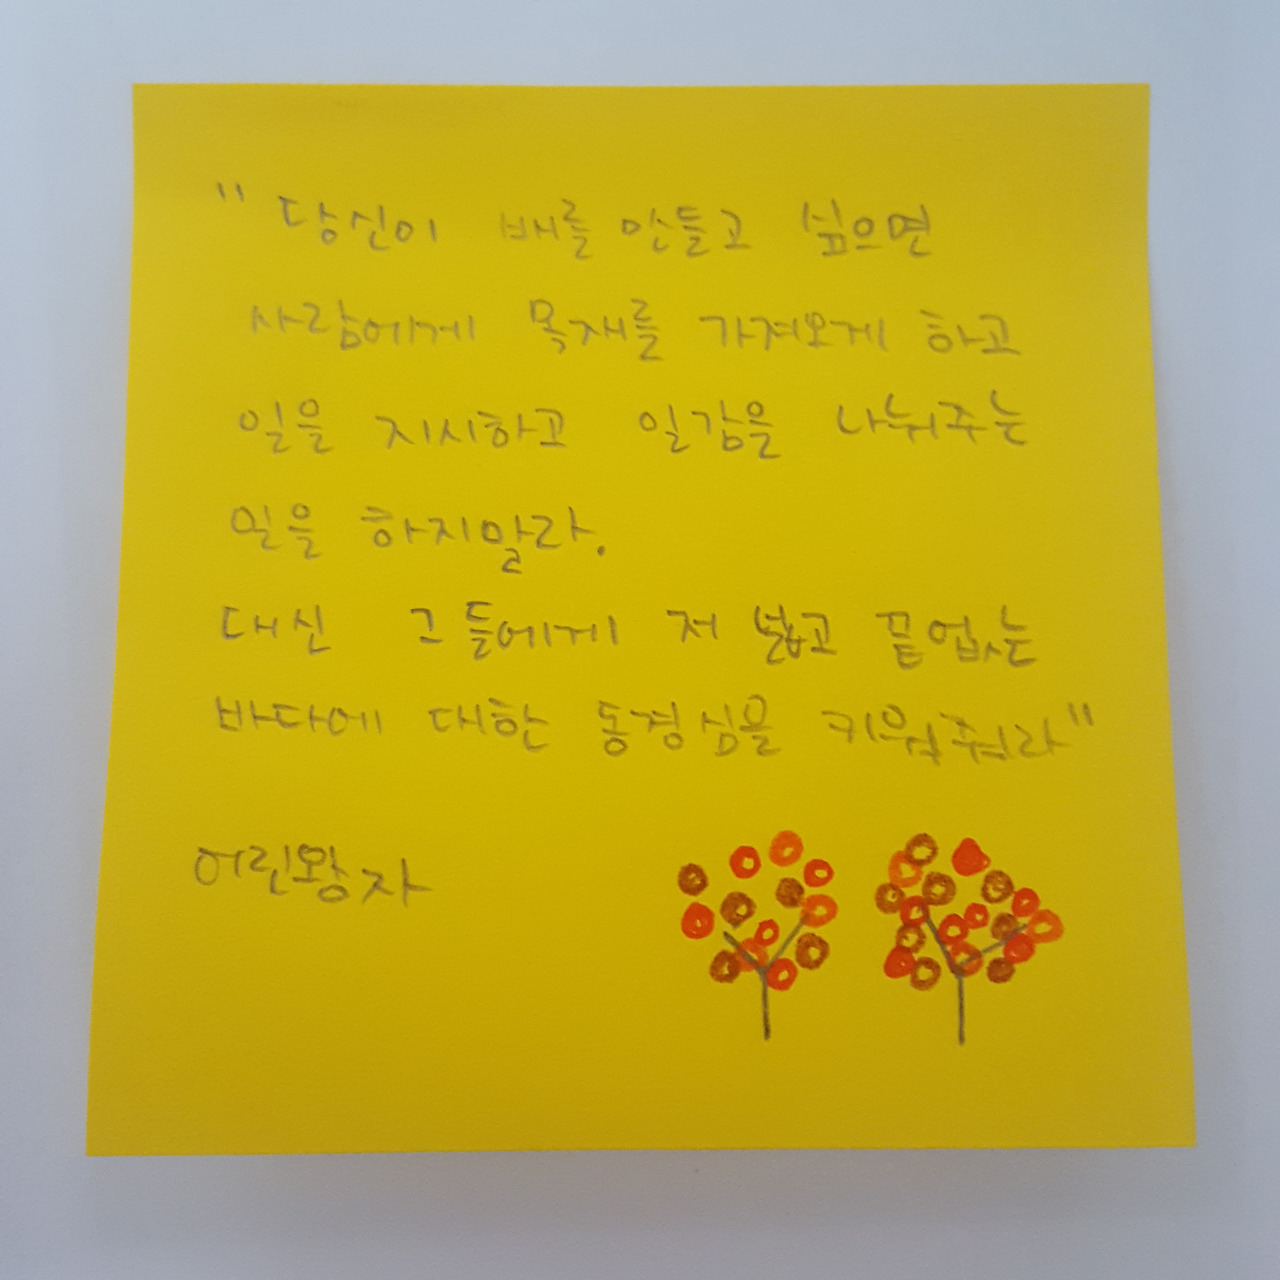 "당신이 배를 만들고 싶으면
사람에게 목재를 가져오게 하고
일을 지시하고 일감을 나눠주는
일을 하지말라.
대신 그들에게 저 넓고 끝없는
바다에 대한 동경심을 키워줘라"
어린왕자